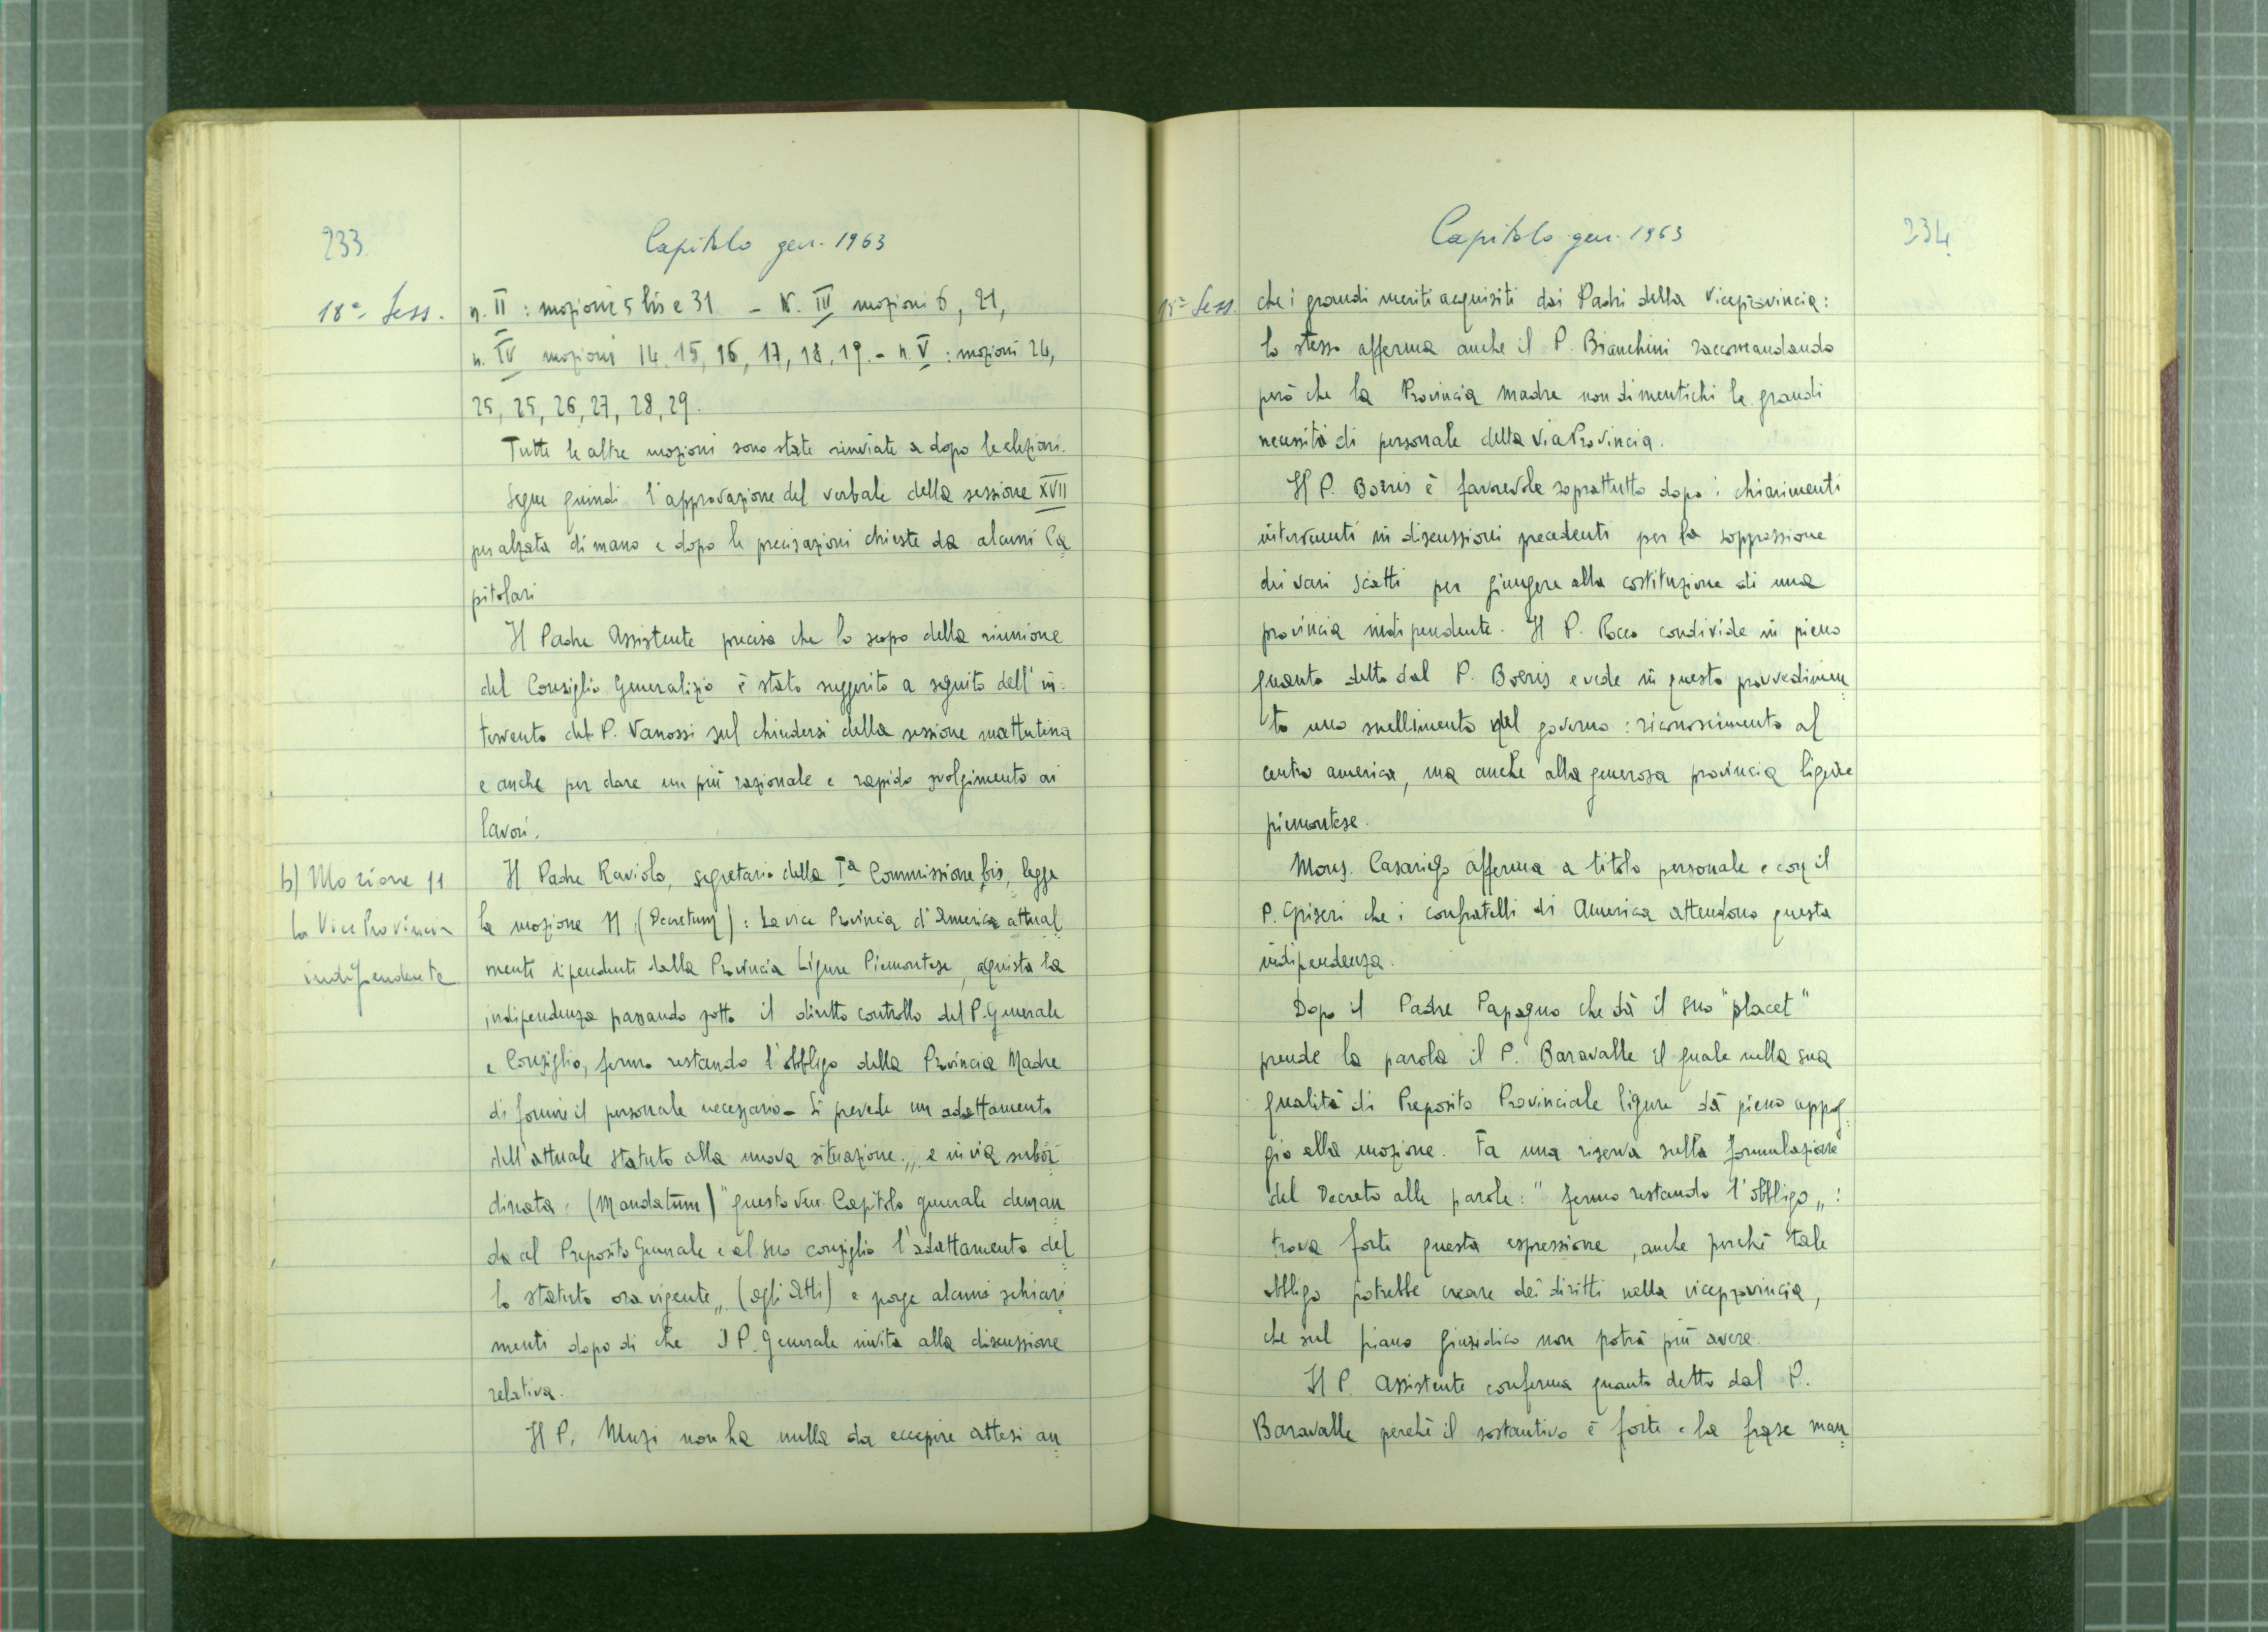 233.
Capitolo gen. 1963
18ª Sess.
n. II : mozioni 5 bis e 31 - N. III mozioni 6, 21,
n. IV mozioni 14. 15, 16, 17, 18, 19. - n. V : mozioni 24,
25, 25, 26, 27, 28, 29.
Tutte le altre mozioni sono state rinviate a dopo le elezioni.
Segue quindi l'approvazione del verbale della sessione XVII
per alzata di mano e dopo le precisazioni chieste da alcuni Ca
pitolari
Il Padre Assistente precisa che lo scopo della riunione
del Consiglio Generalizio è stato suggerito a seguito dell'in=
tervento del P. Vanossi sul chiudersi della sessione mattutina
e anche per dare un più razionale e rapido svolgimento ai
lavori.
b) Mozione 11
la Vice Provincia
indipendente
Il Padre Raviolo, segretario della Iª Commissione bis, legge
la mozione 11 (Decretum) : La vice Provincia d'America attual=
mente dipendente dalla Provincia Ligure Piemontese, aquista la
indipendenza passando sotto il diretto controllo del P. Generale
e Consiglio, fermo restando l'obbligo della Provincia Madre
di fornire il personale necessario - Si prevede un adattamento
dell'attuale statuto alla nuova situazione „ e in via subor=
dinata : (Mandatum) " questo Ven. Capitolo generale deman=
da al Preposito Generale e al suo consiglio l'adattamento del=
lo statuto ora vigente „ (agli Atti) e porge alcuni schiari=
menti dopo di che il P. Generale invita alla discussione
relativa.
Il P. Muzi non ha nulla da eccepire attesi an=
Capitolo gen. 1963
234.
18ª Sess.
che i grandi meriti acquisiti dai Padri della Viceprovincia :
lo stesso afferma anche il P. Bianchini raccomandando
però che la Provincia madre non dimentichi le grandi
necessità di personale della ViaProvincia.
Il P. Boeris è favorevole soprattutto dopo i chiarimenti
intervenuti in discussioni precedenti per la soppressione
dei vari scatti per giungere alla costituzione di una
provincia indipendente. Il P. Rocco condivide in pieno
quanto detto dal P. Boeris e vede in questo provvedimen=
to uno snellimento del governo : riconoscimento al
centro america, ma anche alla generosa provincia ligure
piemontese.
Mons. Casariego afferma a titolo personale e con il
P. Griseri che i confratelli di America attendono questa
indipendenza.
Dopo il Padre Papagno che dà il suo "placet"
prende la parola il P. Baravalle il quale nella sua
qualità di Preposito Provinciale ligure dà pieno appog=
gio alla mozione. Fa una riserva sulla formulazione
del Decreto alle parole : " fermo restando l'obbligo „ :
trova forte questa espressione, anche perchè tale
obbligo potrebbe creare dei diritti nella viceprovincia,
che sul piano giuridico non potrà più avere.
Il P. Assistente conferma quanto detto dal P.
Baravalle perchè il sostantivo è forte e la frase man=